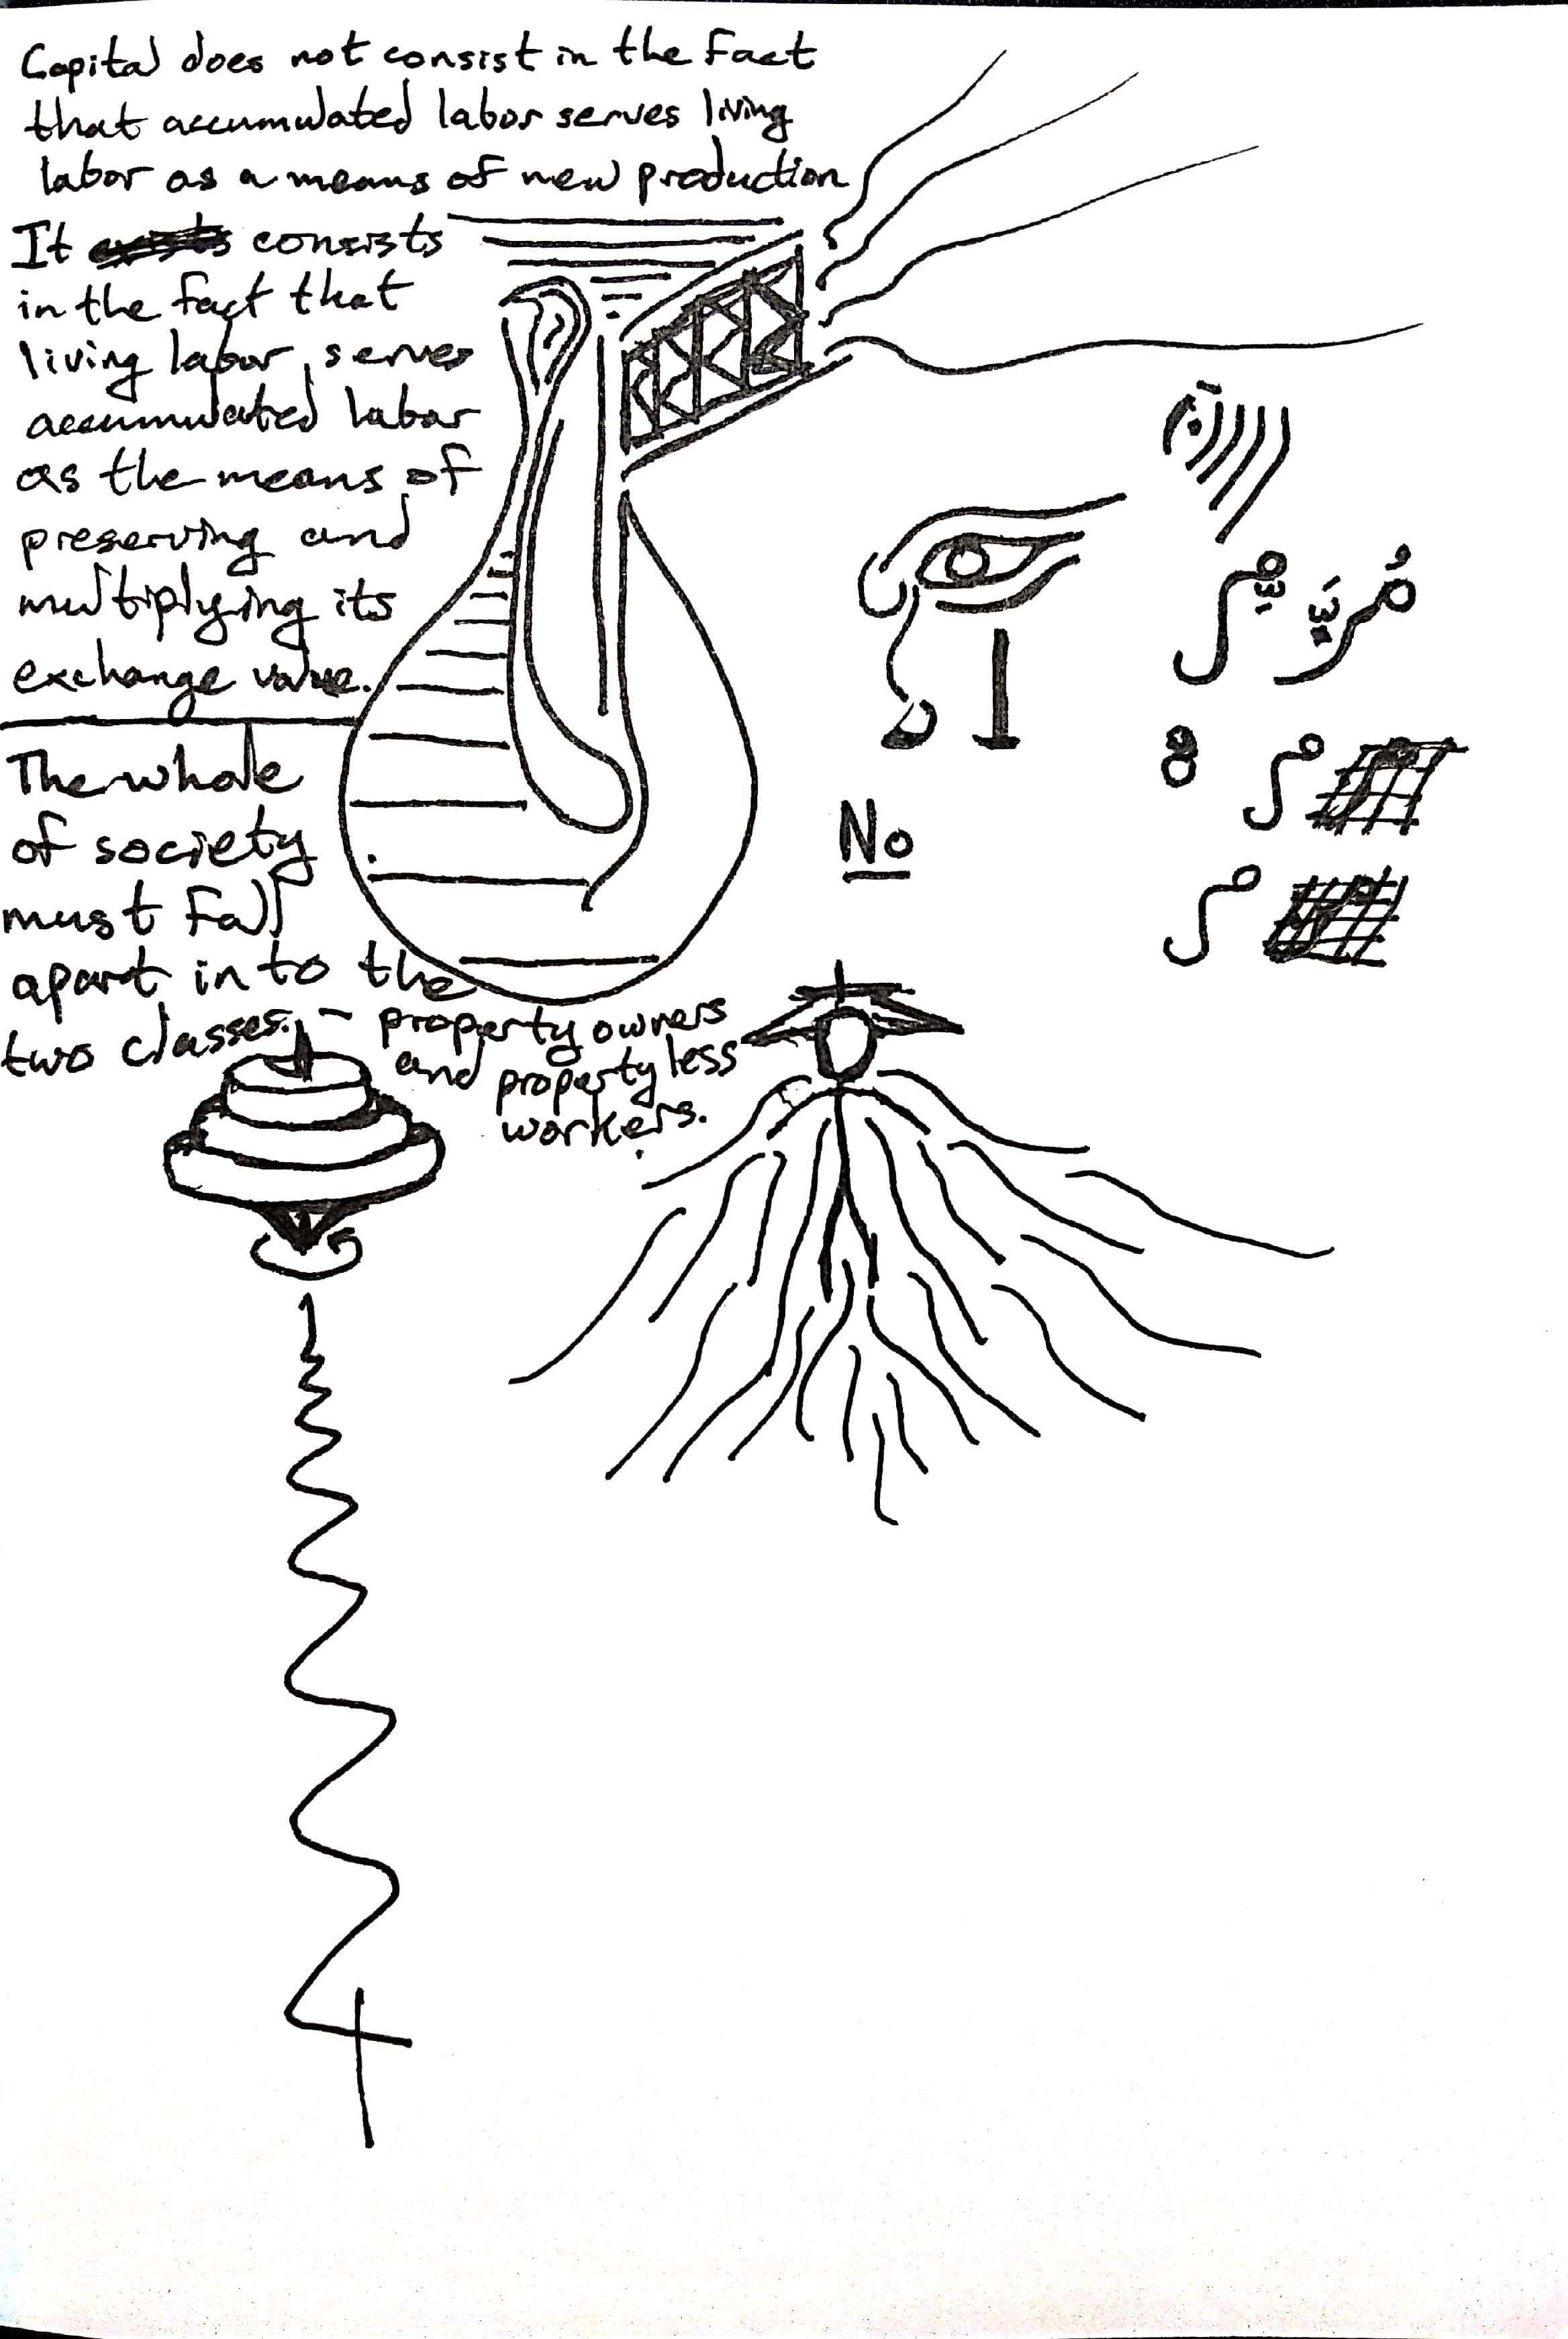 Capital does not consist in the fact
that accumulated labor serves living
labor as a means of new production
It exists consists
in the fact that
living labor serves
accumulated labor
as the means of
preserving and
multiplying its
exchange value.
The whole
of society
must fall
apart in to the
two classes. - property owners
and propertyless
workers.
No